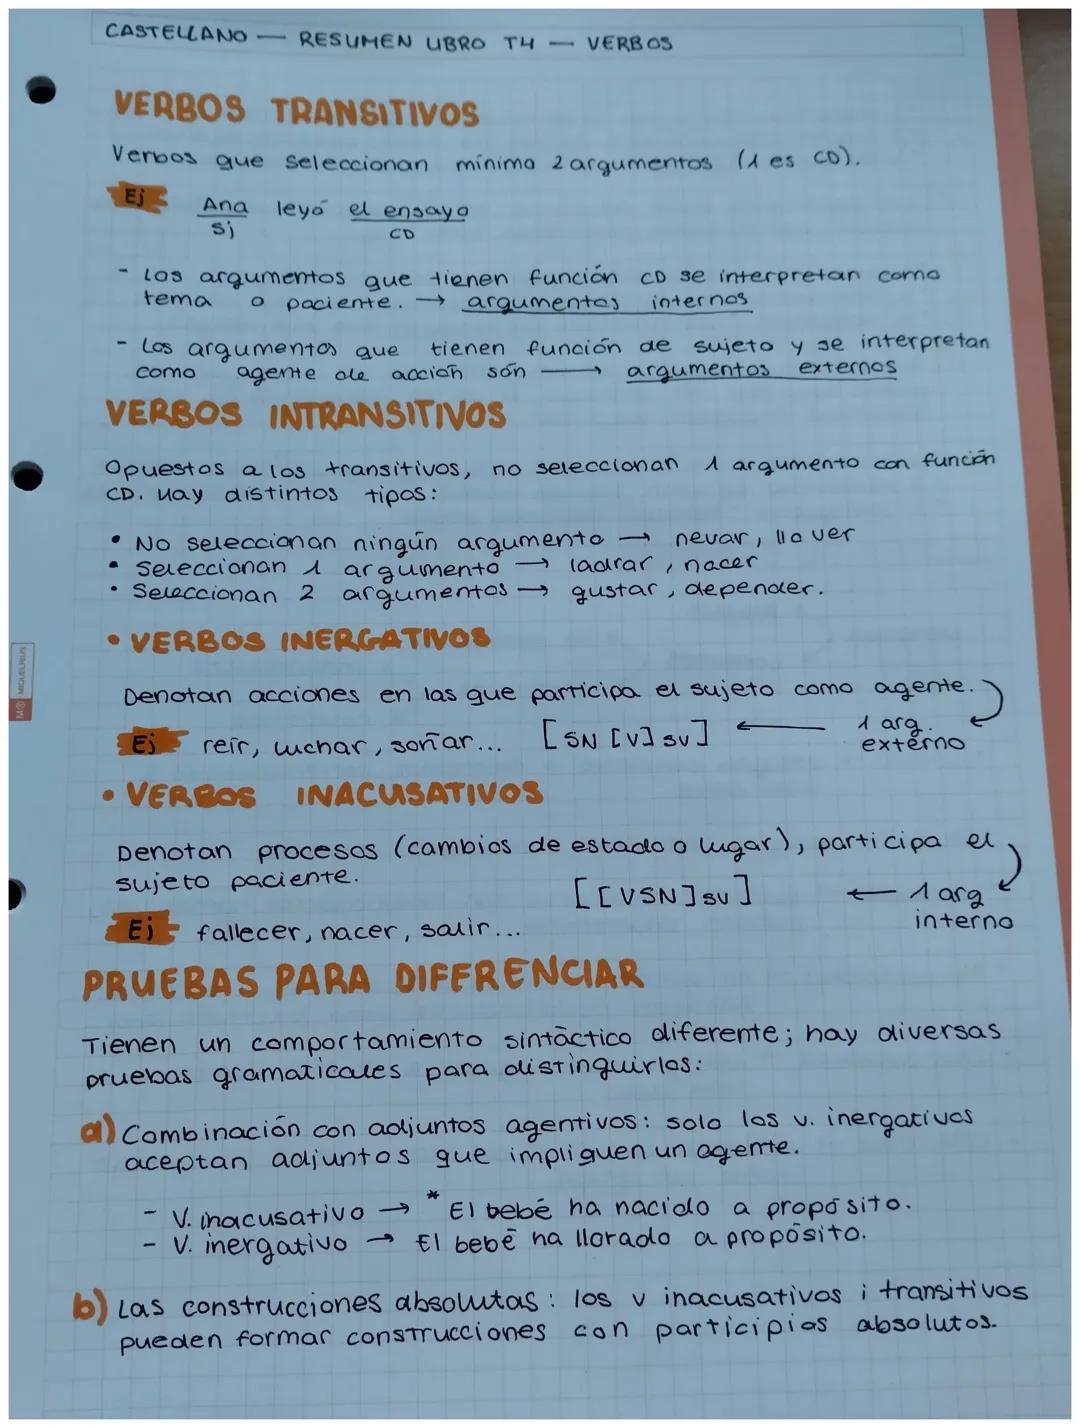 CASTELLANO — RESUMEN LIBRO T4 — VERBOS
VERBOS TRANSITIVOS
Verbos que seleccionan mínimo 2 argumentos (1 es CD).
Ej
Ana leyó el ensayo
Sj CD
- Los argumentos que tienen función CD se interpretan como
tema o paciente. → argumentos internos
- Los argumentos que tienen función de sujeto y se interpretan
como agente de acción són → argumentos externos
VERBOS INTRANSITIVOS
Opuestos a los transitivos, no seleccionan 1 argumento con función
CD. Hay distintos tipos:
• No seleccionan ningún argumento → nevar, llover
• Seleccionan 1 argumento → ladrar, nacer
• Seleccionan 2 argumentos → gustar, depender.
• VERBOS INERGATIVOS
Denotan acciones en las que participa el sujeto como agente.
Ej reír, luchar, soñar... [SN [V] SV] ← 1 arg.
externo
• VERBOS INACUSATIVOS
Denotan procesos (cambios de estado o lugar), participa el
sujeto paciente.
[[VSN] SV] ← 1 arg
interno
Ej fallecer, nacer, salir...
PRUEBAS PARA DIFERENCIAR
Tienen un comportamiento sintáctico diferente; hay diversas
pruebas gramaticales para distinguirlos:
a) Combinación con adjuntos agentivos: solo los v. inergativos
aceptan adjuntos que impliquen un agente.
- V. inacusativo → * El bebé ha nacido a propósito.
- V. inergativo → El bebé ha llorado a propósito.
b) Las construcciones absolutas: los v inacusativos i transitivos
pueden formar construcciones con participios absolutos.
MIQUELRIUS